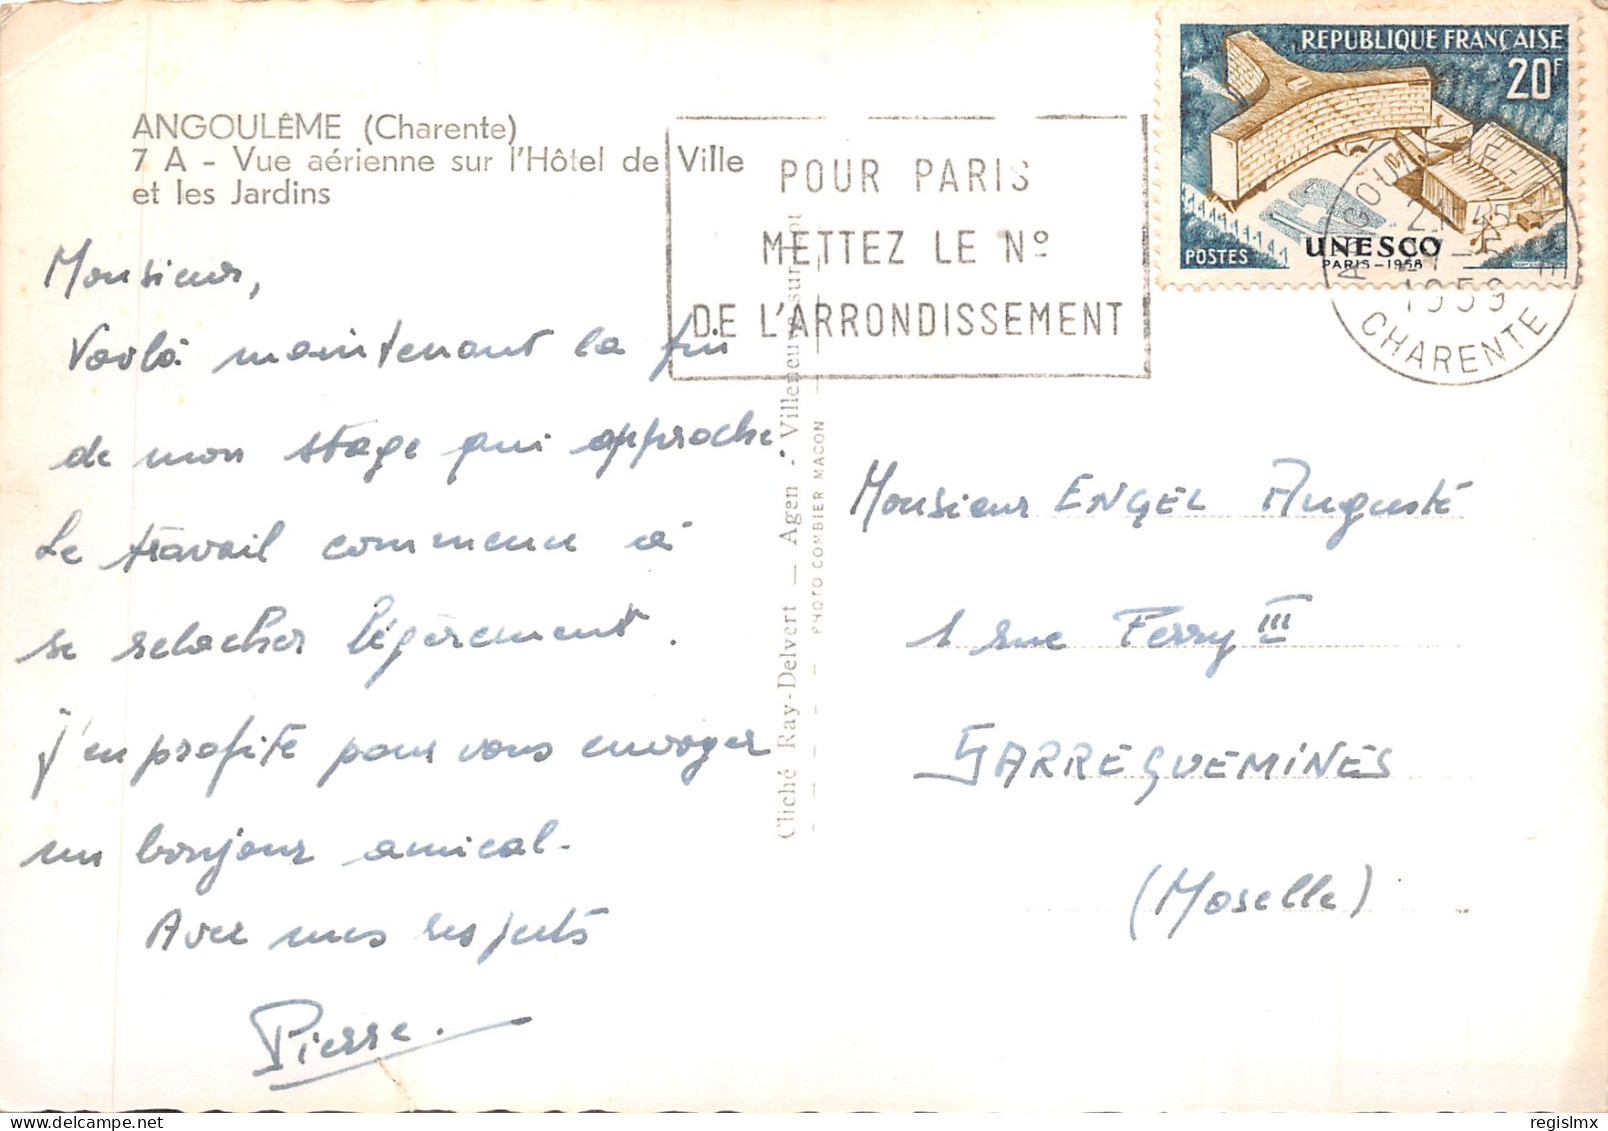 ANGOULÊME (Charente)
7 A - Vue aérienne sur l'Hôtel de Ville
et les Jardins
POUR PARIS
METTEZ LE Nº
DE L'ARRONDISSEMENT
REPUBLIQUE FRANÇAISE
20F
POSTES
UNESCO
PARIS-1958
1959
CHARENTE
Monsieur,
Voilà maintenant la fin
de mon stage qui approche.
Le travail commence à
se relacher légèrement.
j'en profite pour vous envoyer
un bonjour amical.
Avec mes respects
Pierre.
Cliché Ray-Delvert — Agen - Villeneuve sur Lot
PHOTO COMBIER MACON
Monsieur ENGEL Auguste
1 rue Ferry III
SARREGUEMINES
(Moselle)
regislmx